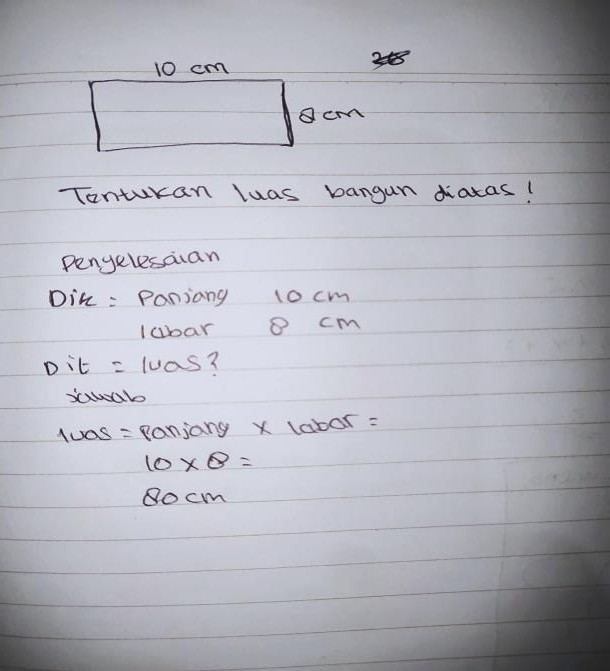 10 cm
8 cm
Tentukan luas bangun diatas!
Penyelesaian
Dik = Panjang 10 cm
labar 8 cm
Dit = luas?
Jawab
luas = panjang x labar =
10 x 8 =
80 cm